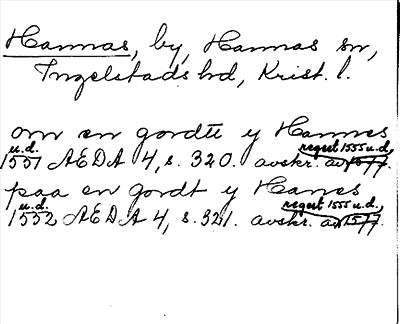 Hannas, by, Hannas sn,
Ingelstads hd, Krist. l.
om en gordtt y Hannes
u.d. regest 1555 u.d.,
1551 AEDA 4, s. 320. avskr. av 1577.
paa en gordt y Hanes
u.d. regest 1555 u.d.,
1552 AEDA 4, s. 321. avskr. av 1577.